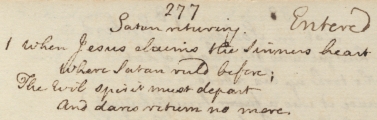 277
Satan returning. Entered
1 When Jesus claims the Sinners heart
Where Satan rul'd before;
The Evil spirit must depart
And dares return no more.